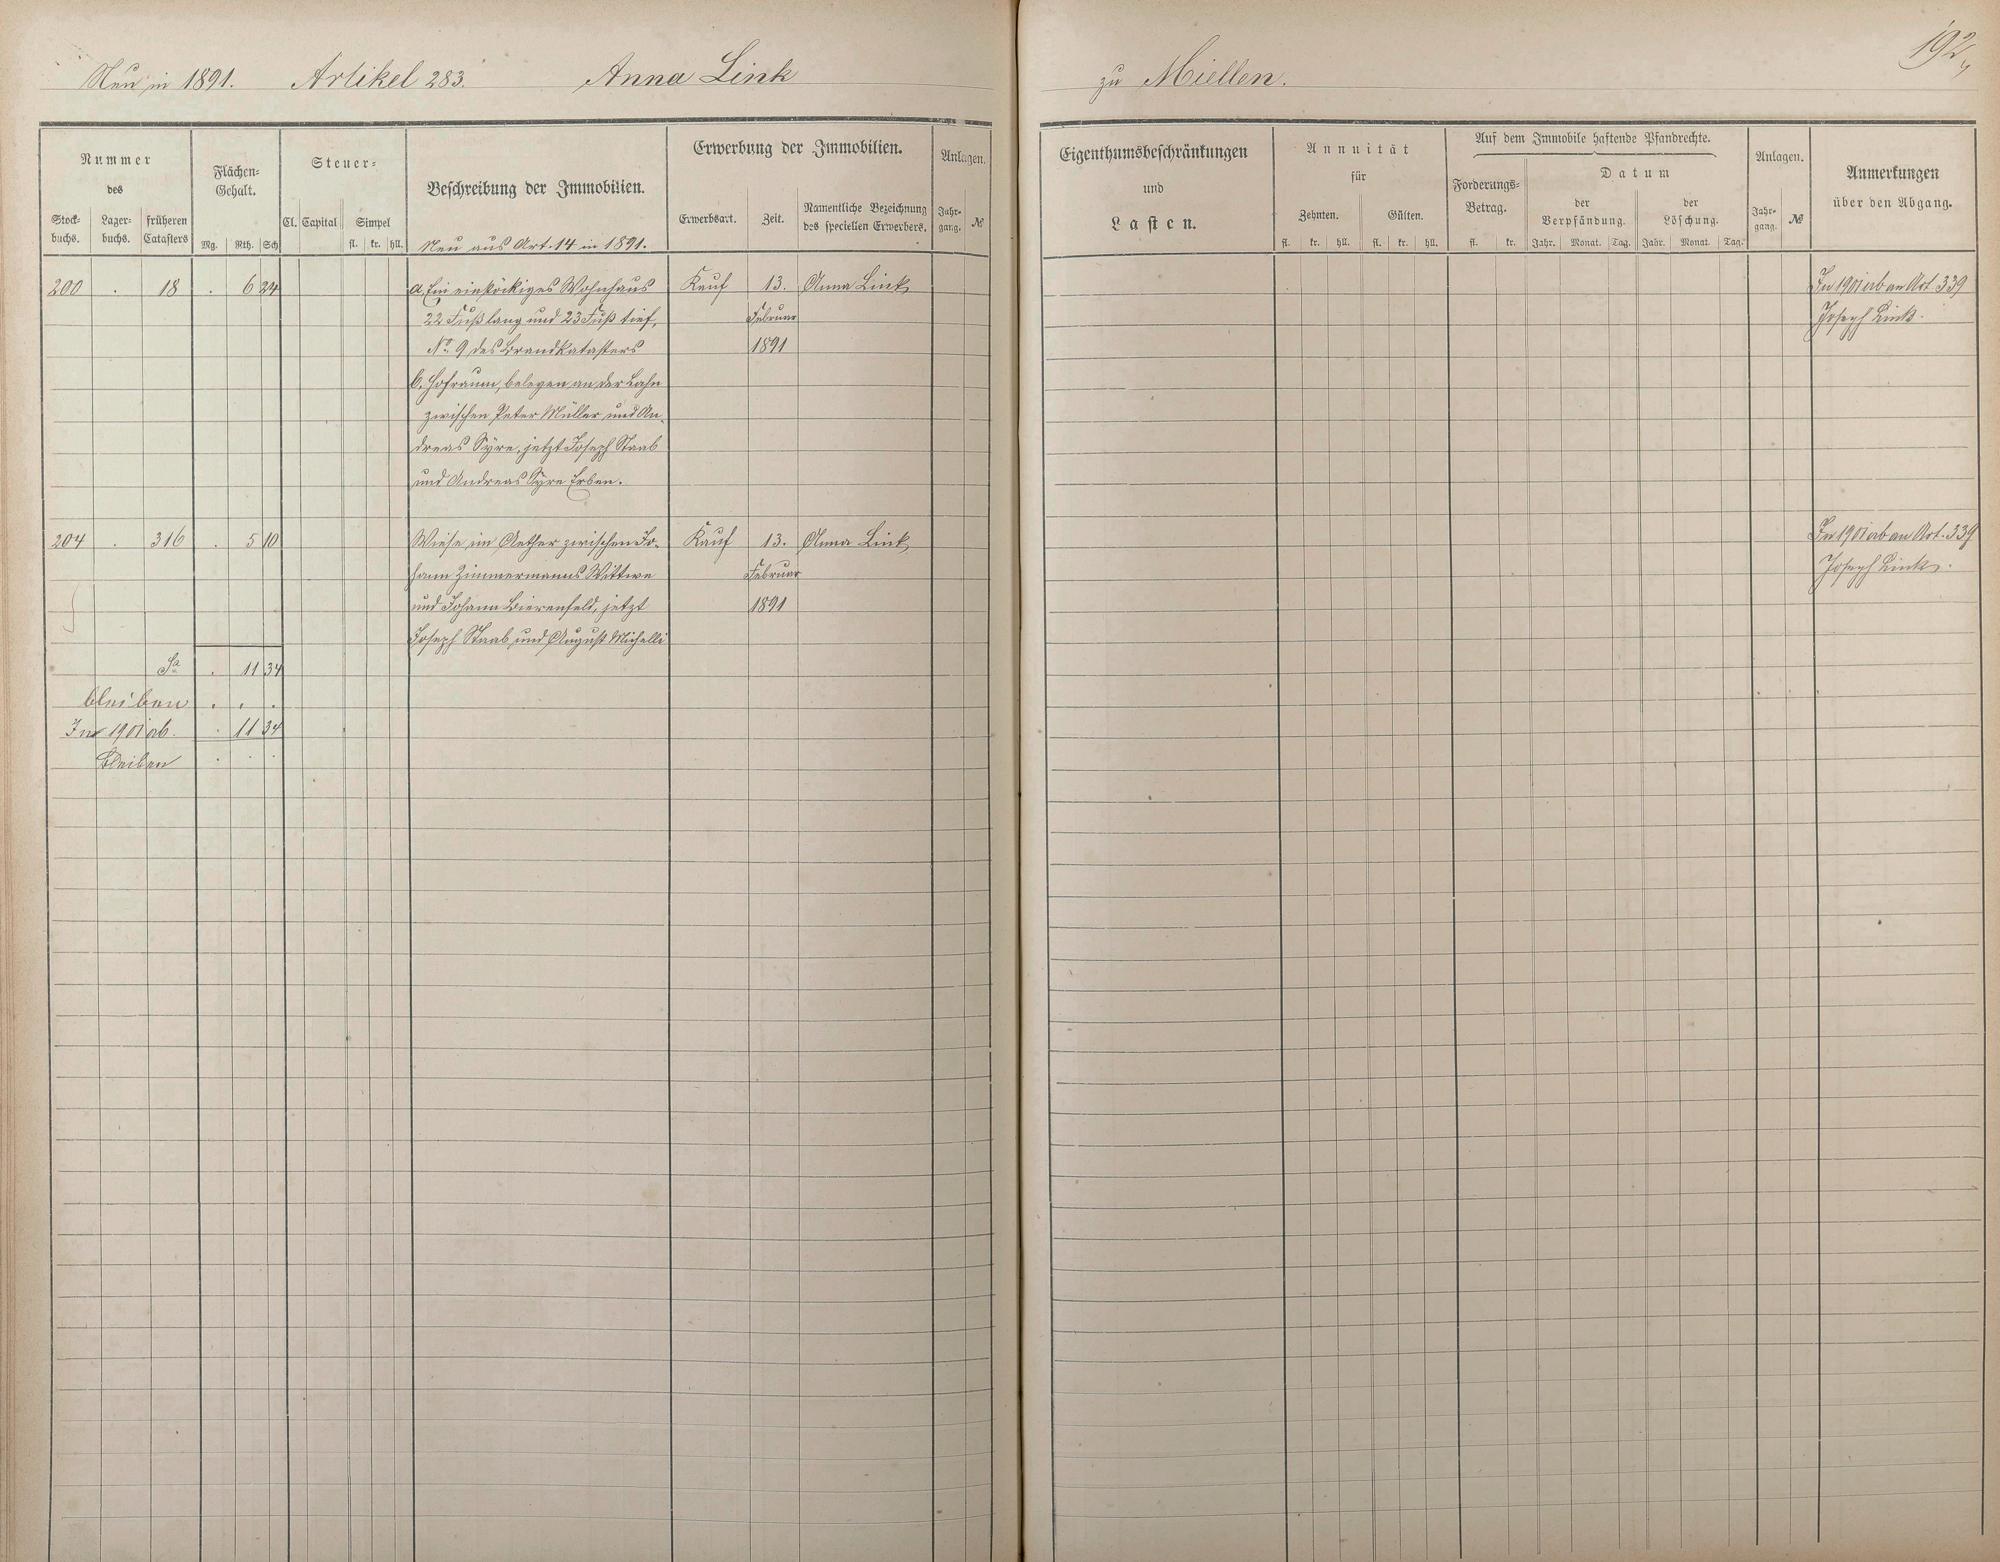 Neu in 1891. Artikel 283. Anna Link
zu Miellen.
192
Nummer
des
Stock-
buchs.
Lager-
buchs.
früheren
Catasters
Flächen-
Gehalt.
Mg. Rth. Sch.
Steuer-
Cl. Capital Simpel
fl. kr. hll.
Beschreibung der Immobilien.
Neu aus Art. 14 in 1891.
Erwerbung der Immobilien.
Erwerbsart. Zeit.
Namentliche Bezeichnung
des speciellen Erwerbers.
Anlagen.
Jahr-
gang. №
Eigenthumsbeschränkungen
und
Lasten.
Annuität
für
Zehnten. Gülten.
fl. kr. hll. fl. kr. hll.
Auf dem Immobile haftende Pfandrechte.
Forderungs-
Betrag.
fl. kr.
Datum
der
Verpfändung.
Jahr. Monat. Tag.
der
Löschung.
Jahr. Monat. Tag.
Anlagen.
Jahr-
gang. №
Anmerkungen
über den Abgang.
200 . 18 . 6 24 a, Ein einstöckiges Wohnhaus Kauf 13. Anna Link In 1901 ab an Art. 339
22 Fuß lang und 23 Fuß tief, Februar Joseph Link.
No. 9 des Brandkatasters 1891
b, Hofraum, belegen an der Lahn
zwischen Peter Müller und An-
dreas Syre, jetzt Joseph Staab
und Andreas Syre Erben.
204 . 316 . 5 10 Wiese im Aether zwischen Jo- Kauf 13. Anna Link In 1901 ab an Art. 339
hann Zimmermanns Wittwe Februar Joseph Link.
und Johann Bierenfeld, jetzt 1891
Joseph Staab und August Michelli
Sa . 11 34
bleiben . . .
In 1901 ab. . 11 34
bleiben . . .